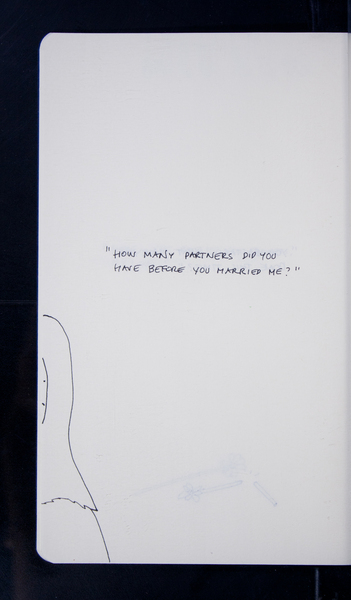 "HOW MANY PARTNERS DID YOU
HAVE BEFORE YOU MARRIED ME?"